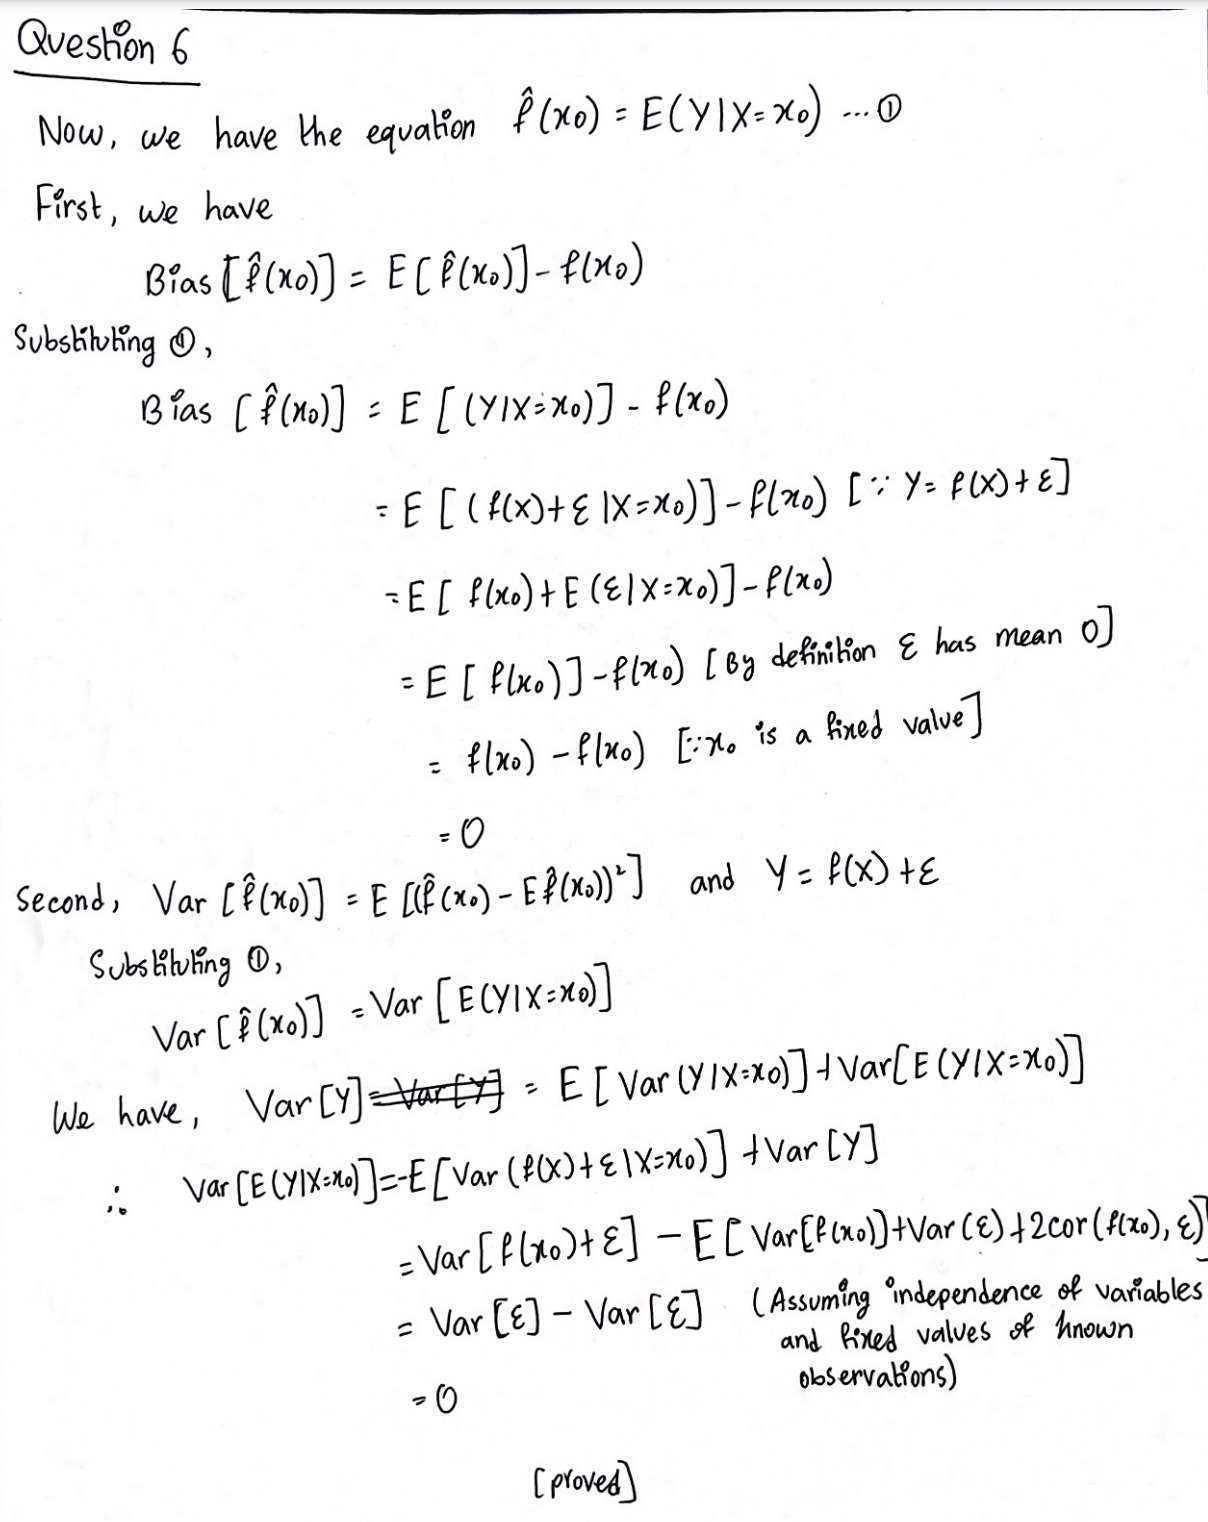 Question 6
Now, we have the equation f̂(x₀) = E(Y|X=x₀) ...①
First, we have
Bias [f̂(x₀)] = E[f̂(x₀)] - f(x₀)
Substituting ①,
Bias [f̂(x₀)] = E[(Y|X=x₀)] - f(x₀)
= E[(f(X)+ε|X=x₀)] - f(x₀) [∵ Y= f(X)+ε]
= E[f(x₀)+E(ε|X=x₀)] - f(x₀)
= E[f(x₀)] - f(x₀) [By definition ε has mean 0]
= f(x₀) - f(x₀) [∵ x₀ is a fixed value]
= 0
Second, Var [f̂(x₀)] = E[(f̂(x₀) - E f̂(x₀))²] and Y = f(X)+ε
Substituting ①,
Var [f̂(x₀)] = Var [E(Y|X=x₀)]
We have, Var[Y] = Var[Y] = E[Var(Y|X=x₀)] + Var[E(Y|X=x₀)]
∴ Var[E(Y|X=x₀)] = -E[Var(f(X)+ε|X=x₀)] + Var[Y]
= Var[f(x₀)+ε] - E[Var[f(x₀)]+Var(ε)+2cor(f(x₀), ε)]
= Var[ε] - Var[ε] (Assuming independence of variables
and fixed values of known
observations)
= 0
[proved]